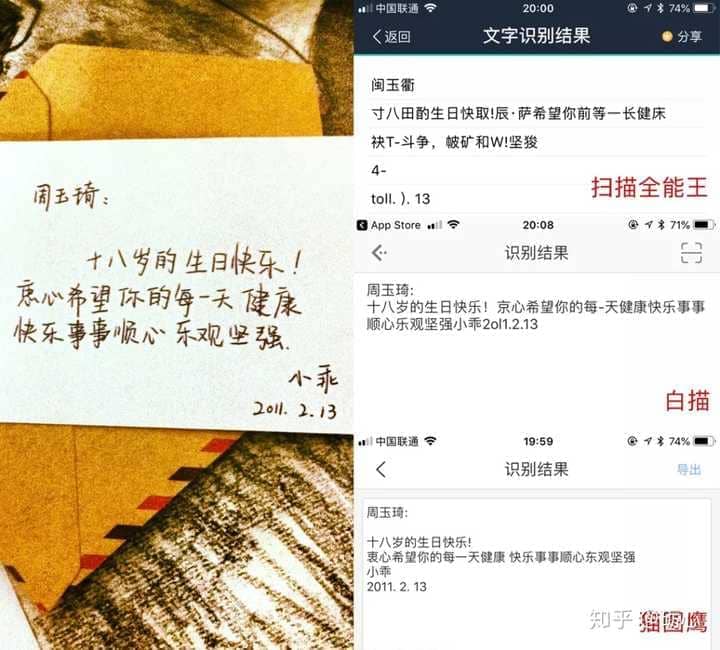 周玉琦：
十八岁的生日快乐！
衷心希望你的每一天健康
快乐事事顺心乐观坚强.
小乖
2011. 2. 13
中国联通 20:00 74%
返回 文字识别结果 分享
闽玉衢
寸八田酌生日快取!辰·萨希望你前等一长健床
袂T-斗争，帔矿和W!坚狻
4-
toll. ). 13
扫描全能王
App Store 20:08 71%
识别结果
周玉琦:
十八岁的生日快乐！京心希望你的每-天健康快乐事事
顺心乐观坚强小乖2ol1.2.13
白描
中国联通 19:59 74%
识别结果 导出
周玉琦:
十八岁的生日快乐!
衷心希望你的每一天健康 快乐事事顺心东观坚强
小乖
2011. 2. 13
知乎
猫图鹰